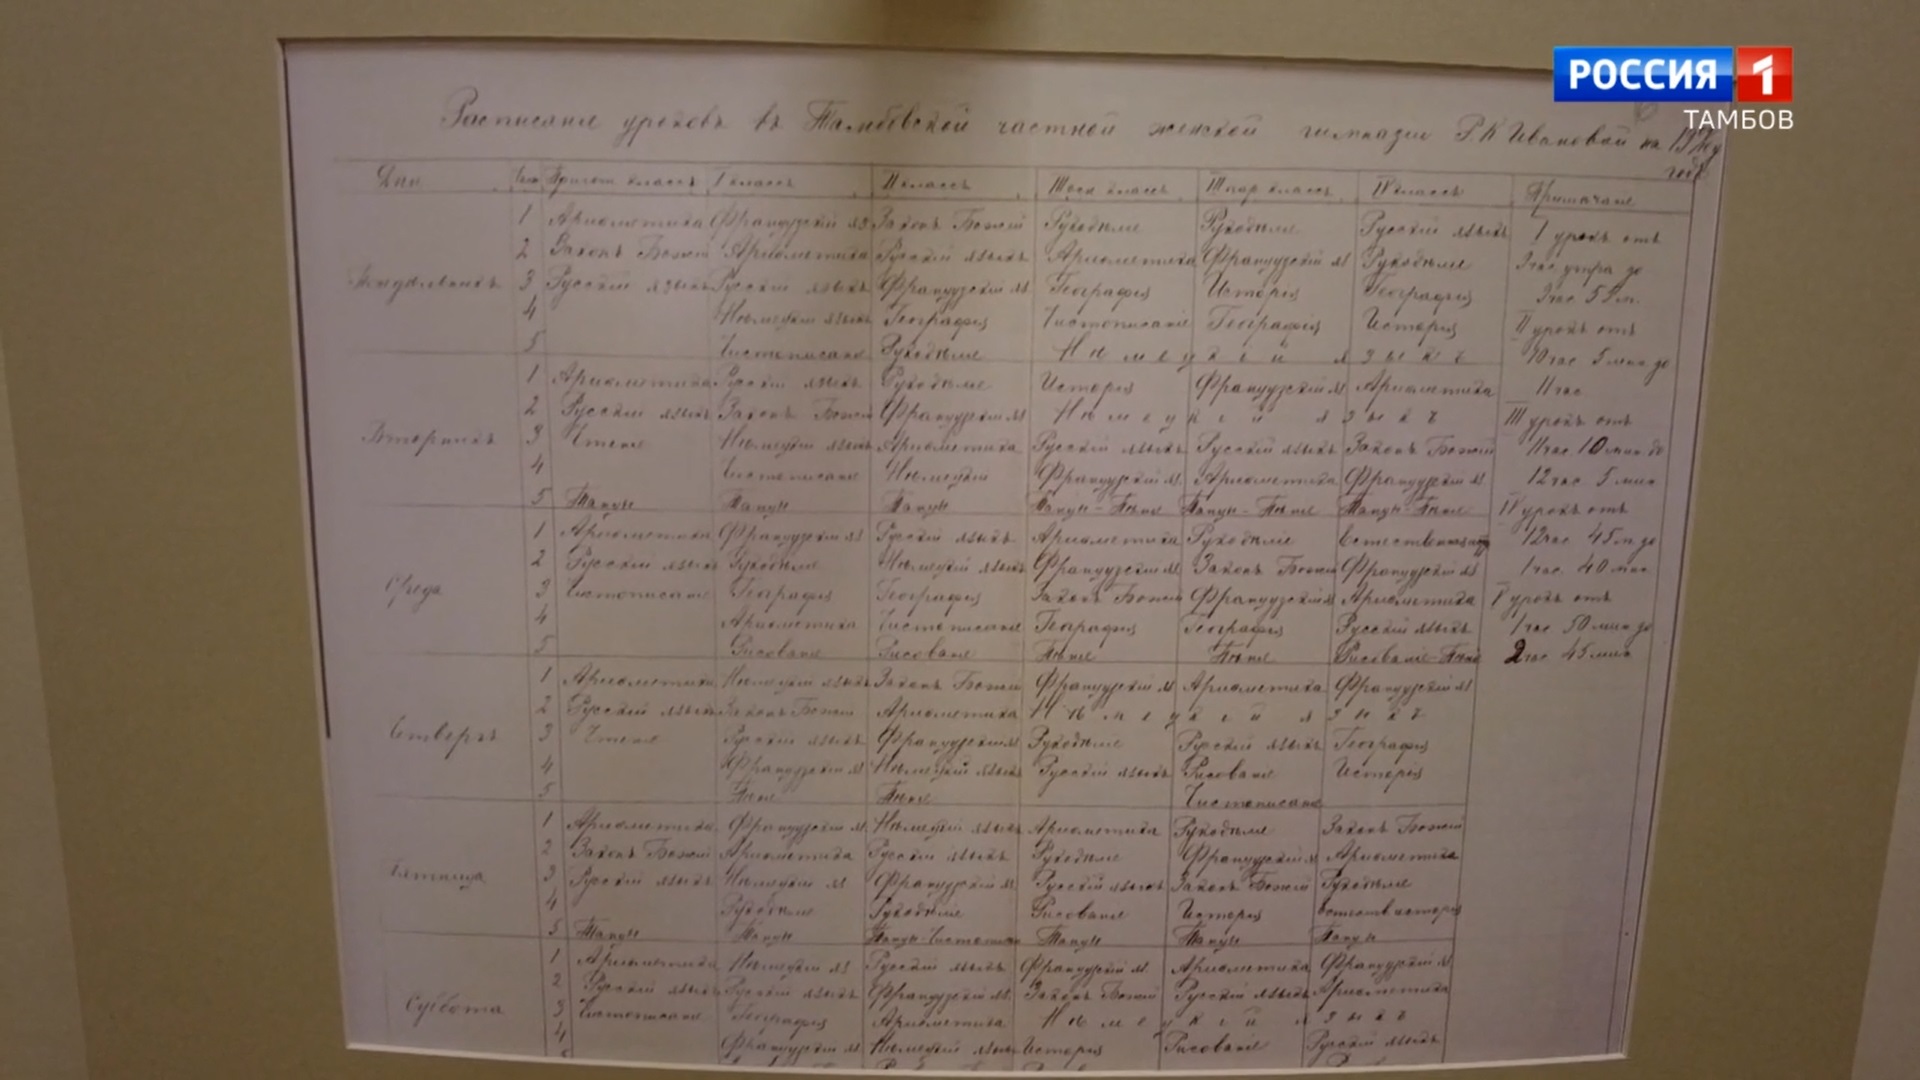 РОССИЯ 1
ТАМБОВ
Расписание уроковъ въ Тамбовской частной женской гимназии Р. К. Ивановой на
годъ
Дни Пригот. классъ I классъ II классъ III осн классъ III пар классъ IV классъ Примѣчание
1 Ариѳметика Французский яз Законъ Божий Рукодѣлие Рукодѣлие Русский языкъ I урокъ отъ
2 Законъ Божий Ариѳметика Русский языкъ Ариѳметика Французский яз Рукодѣлие 9 час утра до
Понедѣльникъ 3 Русский языкъ Русский языкъ Французский яз География История География 9 час 55 м.
4 Нѣмецкий языкъ География Чистописание География История II урокъ отъ
5 Чистописание Рукодѣлие Нѣмецкий языкъ 10 час 5 мин до
1 Ариѳметика Русский языкъ Рукодѣлие История Французский яз Ариѳметика 11 час
2 Русский языкъ Законъ Божий Французский яз Нѣмецкий языкъ III урокъ отъ
Вторникъ 3 Чтение Нѣмецкий языкъ Ариѳметика Русский языкъ Русский языкъ Законъ Божий 11 час 10 мин до
4 Чистописание Нѣмецкий Французский яз. Ариѳметика Французский яз 12 час 5 мин
5 Танцы Танцы Танцы Танцы - Пѣние Танцы - Пѣние Танцы - Пѣние IV урокъ отъ
1 Ариѳметика Французский яз Русский языкъ Ариѳметика Рукодѣлие 12 час 45 м. до
2 Русский языкъ Рукодѣлие Нѣмецкий языкъ Французский яз. Законъ Божий Французский яз 1 час. 40 мин
Среда 3 Чистописание География География Законъ Божий Французский яз Ариѳметика V урокъ отъ
4 Ариѳметика Чистописание География География Русский языкъ 1 час 50 мин до
5 Рисование Рисование Пѣние Пѣние Рисование - Пѣние 2 час 45 мин
1 Ариѳметика Нѣмецкий языкъ Законъ Божий Французский яз. Ариѳметика Французский яз
2 Русский языкъ Законъ Божий Ариѳметика Нѣмецкий языкъ
Четвергъ 3 Чтение Русский языкъ Французский яз Рукодѣлие Русский языкъ География
4 Французский яз Нѣмецкий языкъ Русский языкъ Рисование История
5 Пѣние Пѣние Чистописание
1 Ариѳметика Французский яз. Нѣмецкий языкъ Ариѳметика Рукодѣлие Законъ Божий
2 Законъ Божий Ариѳметика Русский языкъ Рукодѣлие Французский яз Ариѳметика
Пятница 3 Русский языкъ Нѣмецкий яз Французский яз. Русский языкъ Законъ Божий Рукодѣлие
4 Рукодѣлие Рукодѣлие Рисование История Естеств история
5 Танцы Танцы Танцы - Чистописан Танцы Танцы Танцы
1 Ариѳметика Нѣмецкий яз Русский языкъ Французский яз. Ариѳметика Французский яз.
2 Русский языкъ Русский языкъ Французский яз. Законъ Божий Русский языкъ Ариѳметика
Суббота 3 Чистописание География Ариѳметика Нѣмецкий языкъ
4 Французский яз Нѣмецкий языкъ История Рисование Русский языкъ